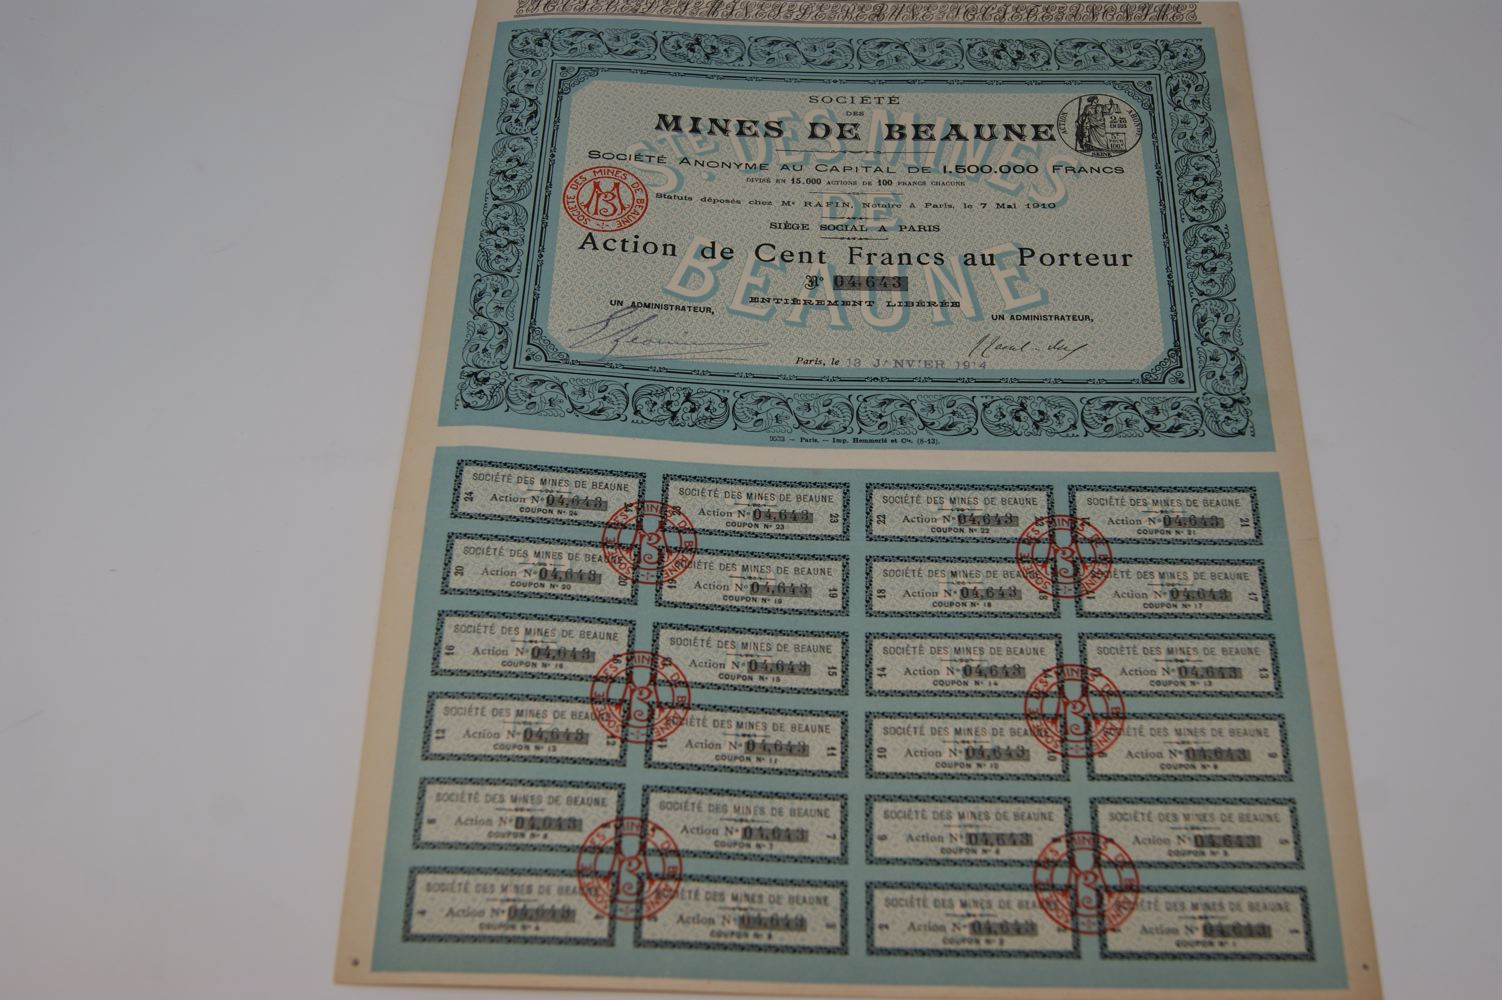 SOCIÉTÉ
DES
MINES DE BEAUNE
SOCIÉTÉ ANONYME AU CAPITAL DE 1.500.000 FRANCS
DIVISÉ EN 15.000 ACTIONS DE 100 FRANCS CHACUNE
Statuts déposés chez Me RAFIN, Notaire à Paris, le 7 Mai 1910
SIÈGE SOCIAL A PARIS
Action de Cent Francs au Porteur
No 04.643
ENTIÈREMENT LIBÉRÉE
UN ADMINISTRATEUR, UN ADMINISTRATEUR,
Paris, le 13 JANVIER 1914
STÉ DES MINES
DE
BEAUNE
SOCIÉTÉ DES MINES DE BEAUNE
9533 — Paris. — Imp. Hemmerlé et Cie. (8-13).
24 SOCIÉTÉ DES MINES DE BEAUNE
Action No 04,643
COUPON No 24
SOCIÉTÉ DES MINES DE BEAUNE 23
Action No 04,643
COUPON No 23
22 SOCIÉTÉ DES MINES DE BEAUNE
Action No 04,643
COUPON No 22
SOCIÉTÉ DES MINES DE BEAUNE 21
Action No 04,643
COUPON No 21
20 SOCIÉTÉ DES MINES DE BEAUNE 20
Action No 04,643
COUPON No 20
SOCIÉTÉ DES MINES DE BEAUNE 19
Action No 04,643
COUPON No 19
18 SOCIÉTÉ DES MINES DE BEAUNE 18
Action No 04,643
COUPON No 18
SOCIÉTÉ DES MINES DE BEAUNE 17
Action No 04,643
COUPON No 17
16 SOCIÉTÉ DES MINES DE BEAUNE
Action No 04,643
COUPON No 16
SOCIÉTÉ DES MINES DE BEAUNE 15
Action No 04,643
COUPON No 15
14 SOCIÉTÉ DES MINES DE BEAUNE
Action No 04,643
COUPON No 14
SOCIÉTÉ DES MINES DE BEAUNE 13
Action No 04,643
COUPON No 13
12 SOCIÉTÉ DES MINES DE BEAUNE 12
Action No 04,643
COUPON No 12
SOCIÉTÉ DES MINES DE BEAUNE 11
Action No 04,643
COUPON No 11
10 SOCIÉTÉ DES MINES DE BEAUNE 10
Action No 04,643
COUPON No 10
SOCIÉTÉ DES MINES DE BEAUNE 9
Action No 04,643
COUPON No 9
8 SOCIÉTÉ DES MINES DE BEAUNE
Action No 04,643
COUPON No 8
SOCIÉTÉ DES MINES DE BEAUNE 7
Action No 04,643
COUPON No 7
6 SOCIÉTÉ DES MINES DE BEAUNE
Action No 04,643
COUPON No 6
SOCIÉTÉ DES MINES DE BEAUNE 5
Action No 04,643
COUPON No 5
4 SOCIÉTÉ DES MINES DE BEAUNE
Action No 04,643
COUPON No 4
SOCIÉTÉ DES MINES DE BEAUNE 3
Action No 04,643
COUPON No 3
2 SOCIÉTÉ DES MINES DE BEAUNE
Action No 04,643
COUPON No 2
SOCIÉTÉ DES MINES DE BEAUNE 1
Action No 04,643
COUPON No 1